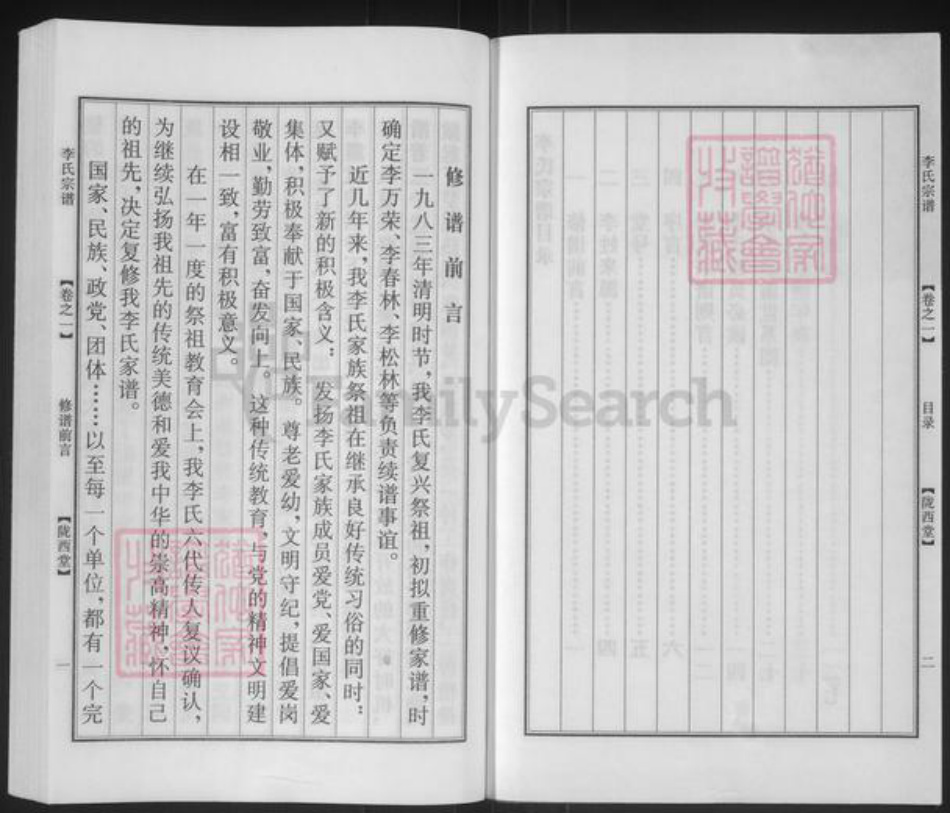 李氏宗谱
【卷之一】
目录
【陇西堂】
二
修谱前言
一九八三年清明时节，我李氏复兴祭祖，初拟重修家谱，时
确定李万荣、李春林、李松林等负责续谱事谊。
近几年来，我李氏家族祭祖在继承良好传统习俗的同时：
又赋予了新的积极含义：发扬李氏家族成员爱党、爱国家、爱
集体，积极奉献于国家、民族。尊老爱幼，文明守纪，提倡爱岗
敬业，勤劳致富，奋发向上。这种传统教育，与党的精神文明建
设相一致，富有积极意义。
在一年一度的祭祖教育会上，我李氏六代传人复议确认，
为继续弘扬我祖先的传统美德和爱我中华的崇高精神，怀自己
的祖先，决定复修我李氏家谱。
国家、民族、政党、团体……以至每一个单位，都有一个完
李氏宗谱
【卷之一】
修谱前言
【陇西堂】
一
FamilySearch